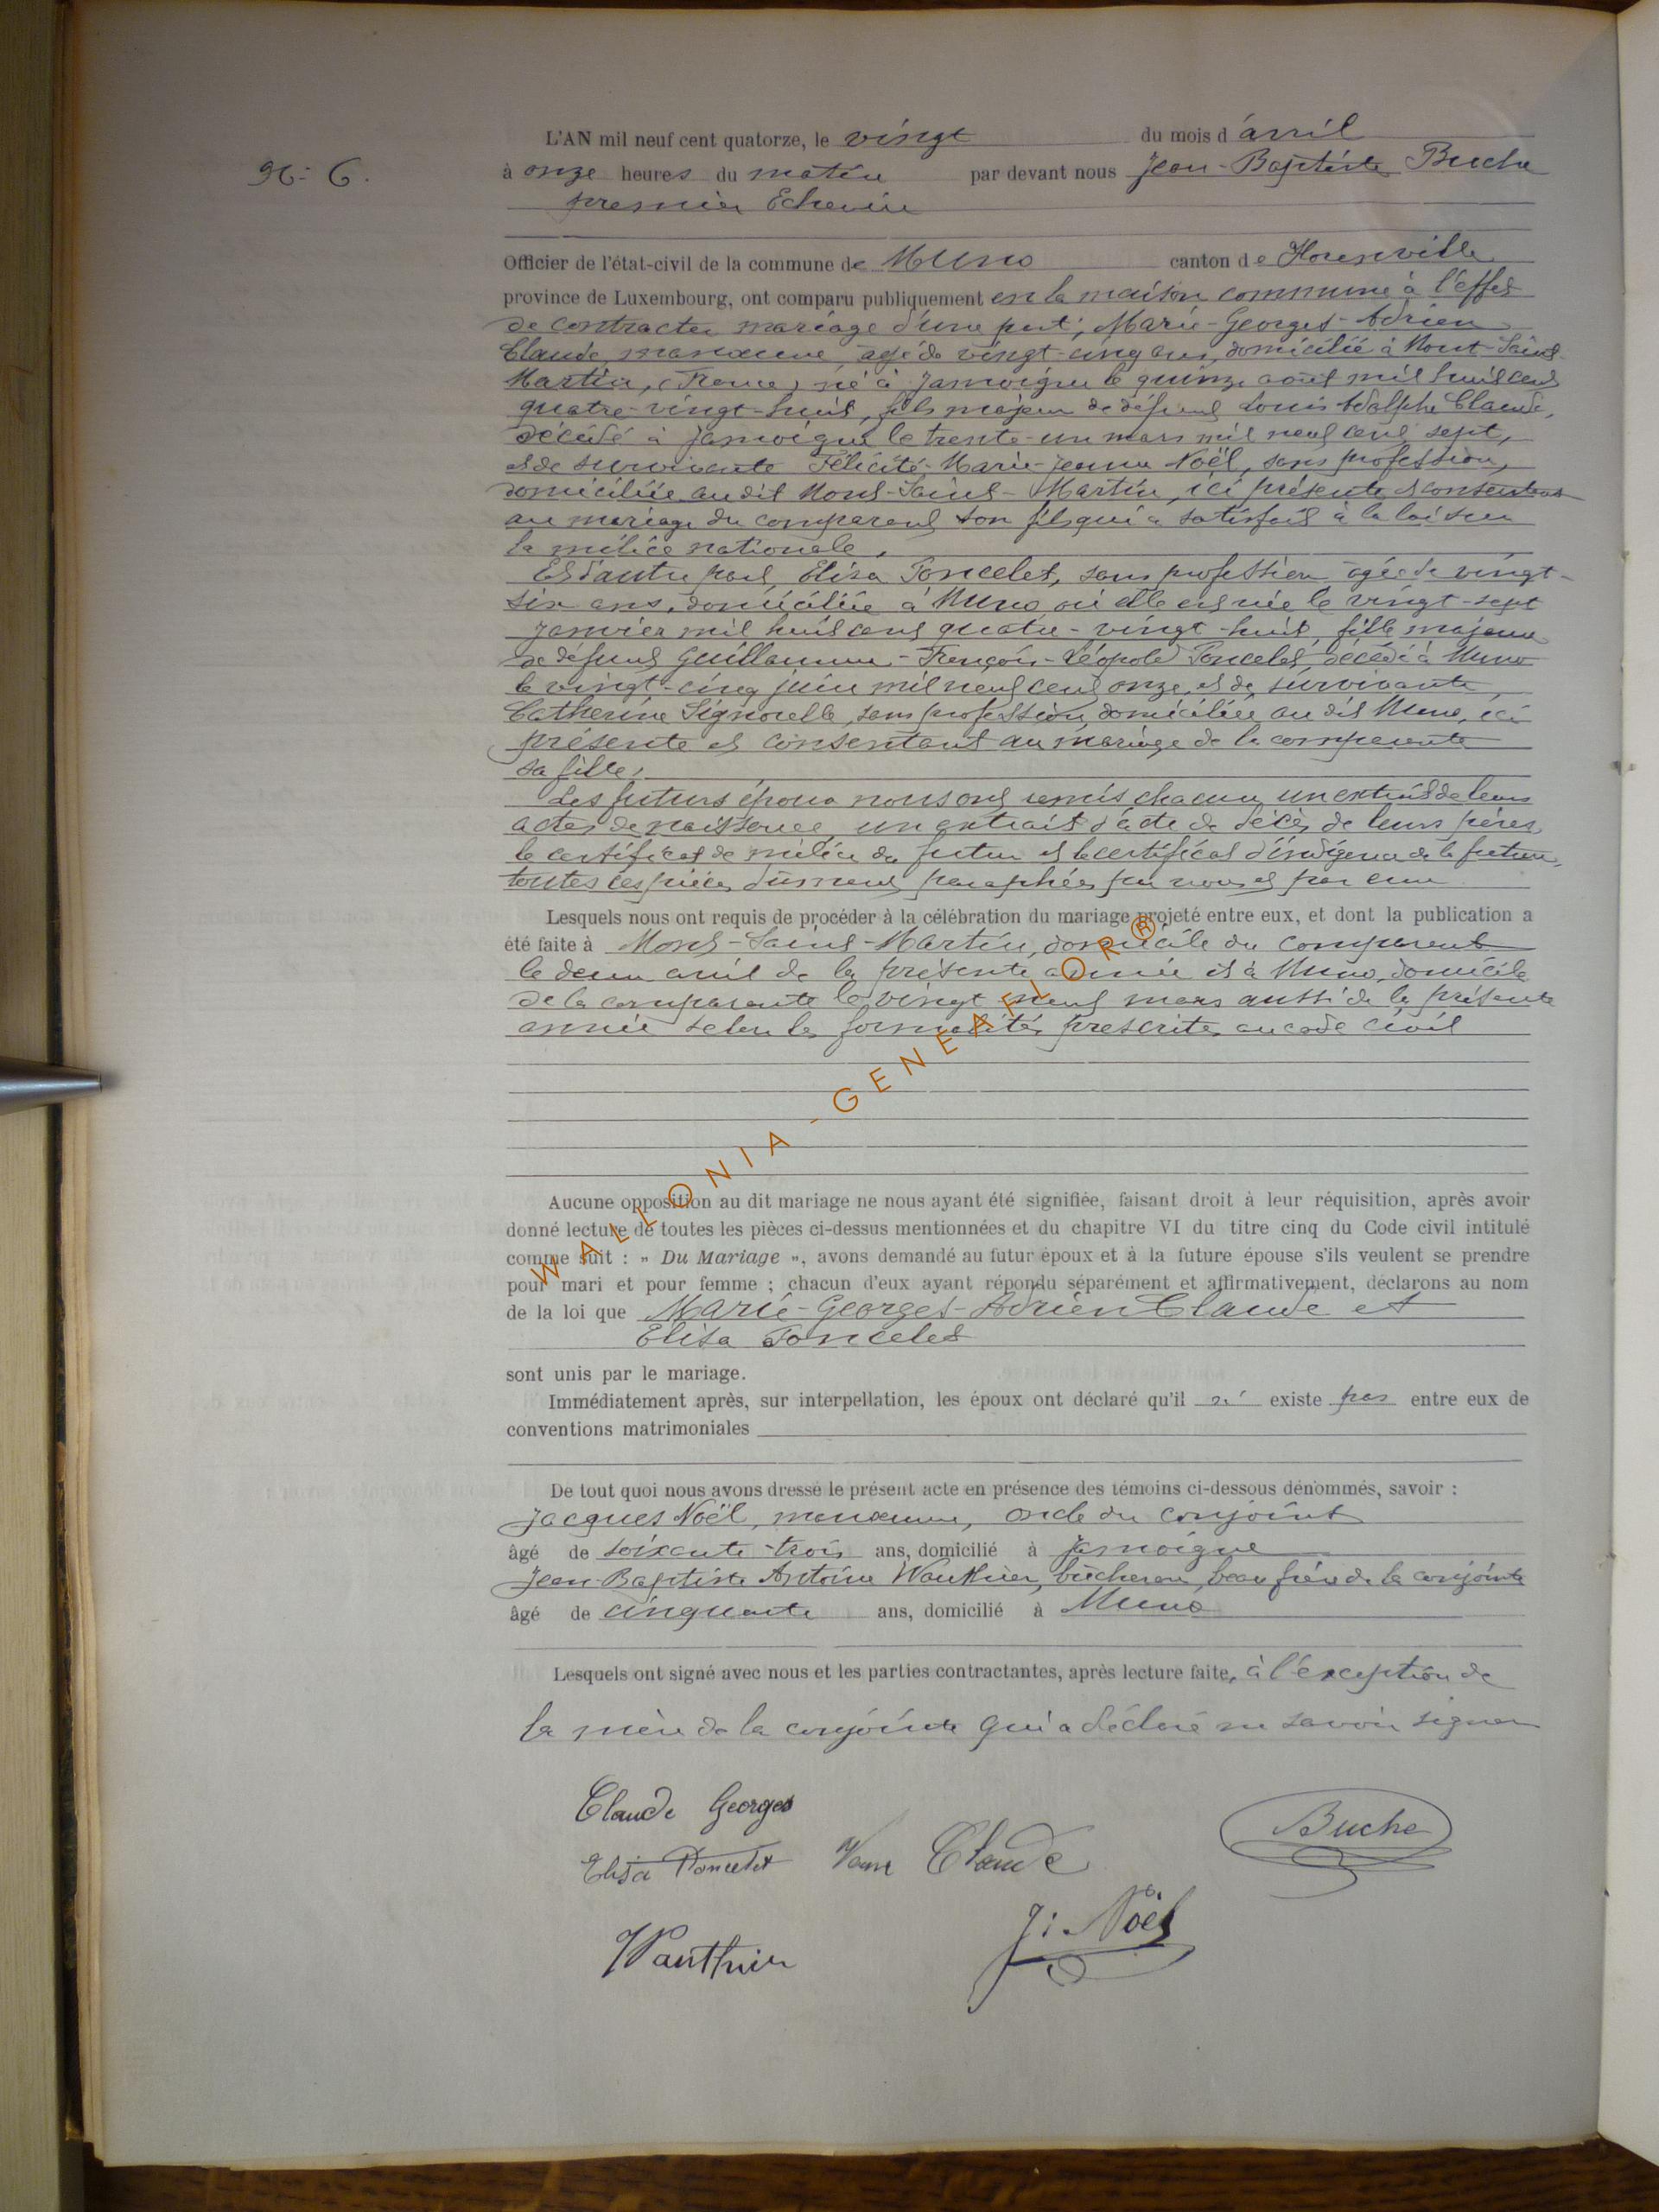 N° 6.
L'AN mil neuf cent quatorze, le vingt du mois d'avril
à onze heures du matin par devant nous Jean-Baptiste Buche
premier Echevin
Officier de l'état-civil de la commune de Muno canton de Florenville
province de Luxembourg, ont comparu publiquement en la maison commune à l'effet
de contracter mariage d'une part; Marie-Georges-Adrien
Claude, manœuvre, agé de vingt-cinq ans, domicilié à Mont-Saint-
Martin, (France) né à Jamoigne le quinze août mil huit cent
quatre-vingt-huit, fils majeur de défunt Louis Adolphe Claude,
décédé à Jamoigne le trente-un mars mil neuf cent sept,
et de survivante Félicité-Marie-Jeanne Noël, sans profession,
domiciliée au dit Mont-Saint-Martin, ici présente et consentant
au mariage du comparant son fils qui a satisfait à la loi sur
la milice nationale.
Et d'autre part, Elisa Poncelet, sans profession agée de vingt-
six ans, domiciliée à Muno où elle est née le vingt-sept
janvier mil huit cent quatre-vingt-huit, fille majeure
de défunt Guillaume-François-Léopold Poncelet, décédé à Muno
le vingt-cinq juin mil neuf cent onze, et de survivante
Catherine Signorelle, sans profession, domiciliée au dit Muno, ici
présente et consentant au mariage de la comparante
sa fille;
Les futurs époux nous ont remis chacun un extrait de leurs
actes de naissance, un extrait d'acte de décès de leurs pères,
le certificat de milice du futur et le certificat d'indigence de la future,
toutes ces pièces dûment paraphées par nous et par eux
Lesquels nous ont requis de procéder à la célébration du mariage projeté entre eux, et dont la publication a
été faite à Mont-Saint-Martin, domicile du comparant
le deux avril de la présente année et à Muno, domicile
de la comparante le vingt-neuf mars aussi de la présente
année selon les formalités prescrites au code civil
WALLONIA - GENEAFLOR®
Aucune opposition au dit mariage ne nous ayant été signifiée, faisant droit à leur réquisition, après avoir
donné lecture de toutes les pièces ci-dessus mentionnées et du chapitre VI du titre cinq du Code civil intitulé
comme suit : „ Du Mariage „, avons demandé au futur époux et à la future épouse s'ils veulent se prendre
pour mari et pour femme ; chacun d'eux ayant répondu séparément et affirmativement, déclarons au nom
de la loi que Marie-Georges-Adrien Claude et
Elisa Poncelet
sont unis par le mariage.
Immédiatement après, sur interpellation, les époux ont déclaré qu'il n' existe pas entre eux de
conventions matrimoniales
De tout quoi nous avons dressé le présent acte en présence des témoins ci-dessous dénommés, savoir :
Jacques Noël, manœuvre, oncle du conjoint
âgé de soixante-trois ans, domicilié à Jamoigne
Jean-Baptiste Antoine Wauthier, bûcheron, beau frère de la conjointe
âgé de cinquante ans, domicilié à Muno
Lesquels ont signé avec nous et les parties contractantes, après lecture faite, à l'exception de
la mère de la conjointe qui a déclaré ne savoir signer
Claude Georges
Buche
Elisa Poncelet Claude
J. Noël
Wauthier